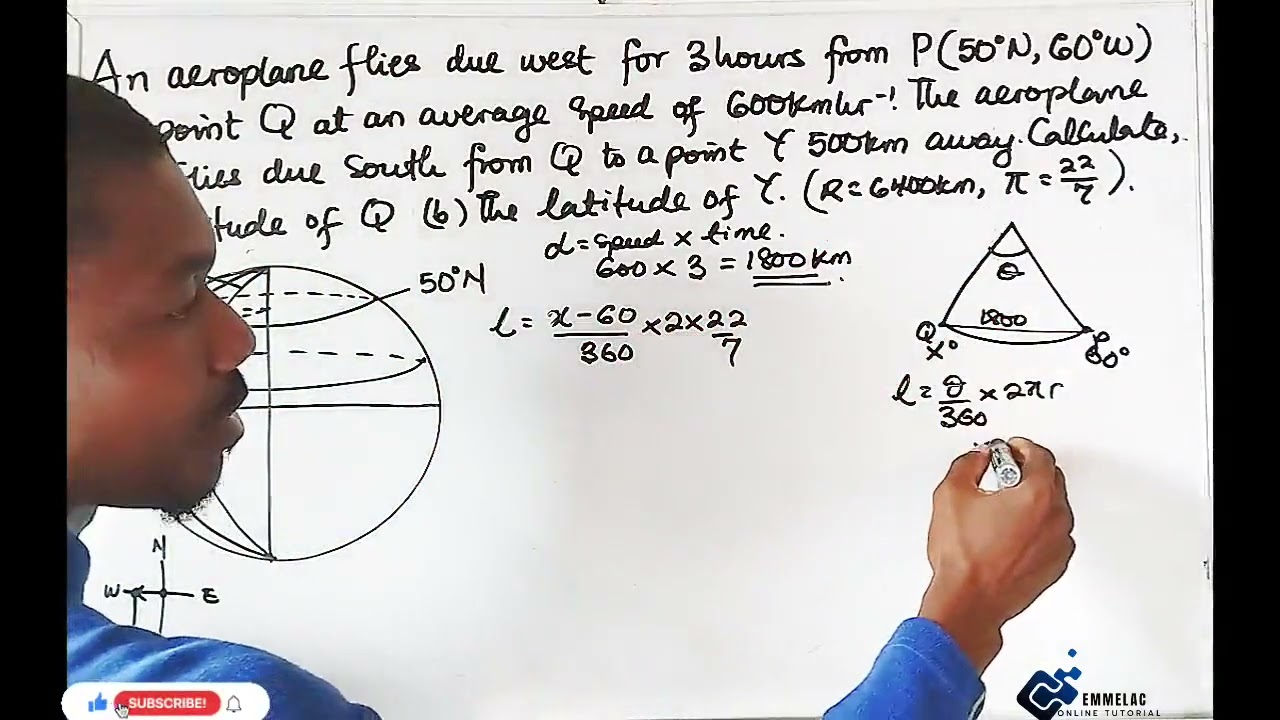 An aeroplane flies due west for 3 hours from P(50°N, 60°W)
point Q at an average speed of 600kmhr⁻¹. The aeroplane
flies due South from Q to a point Y 500km away. Calculate,
tude of Q (b) The latitude of Y. (R=6400km, π = 22/7).
d = speed × time.
600 × 3 = 1800km.
50°N
l = x-60/360 × 2 × 22/7
θ
1800
Q
x°
P
60°
l = θ/360 × 2πr
N
W E
SUBSCRIBE!
EMMELAC
ONLINE TUTORIAL